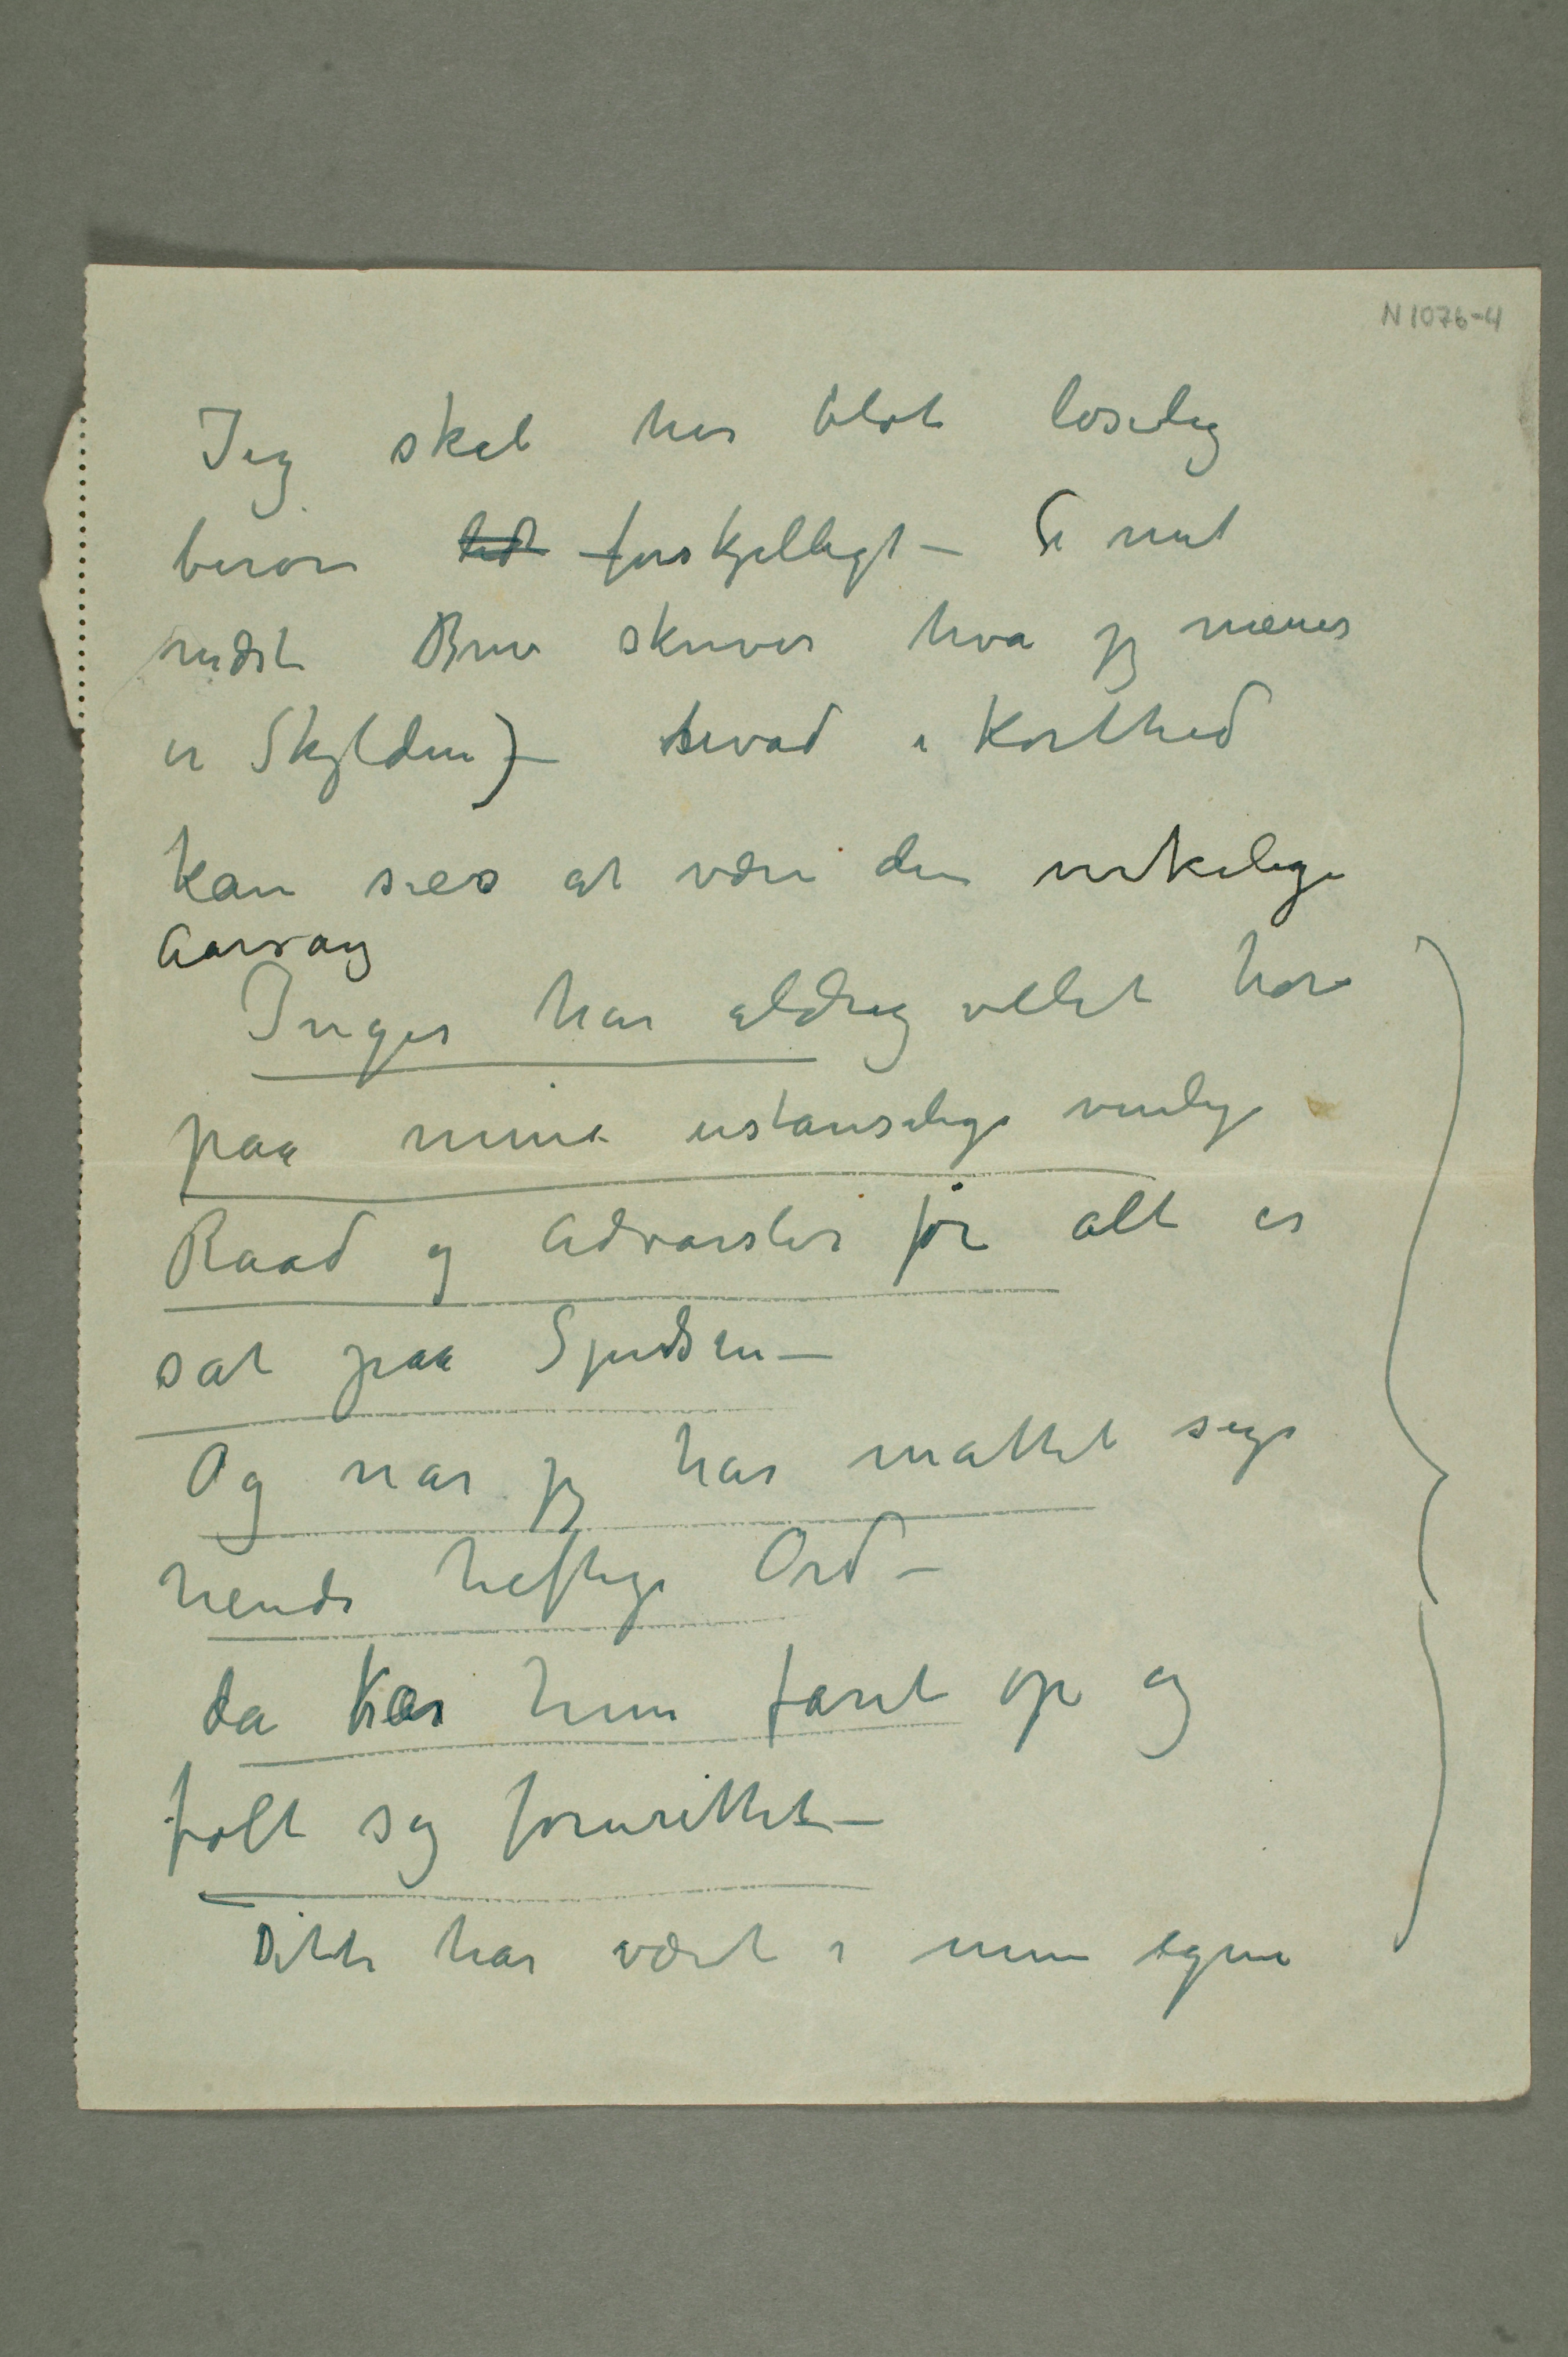 N 1076-4
Jeg skal her blot løselig
berøre lidt forskjelligt – (i mit
næste Brev skriver hva jeg mener
er Skylden) – hvad i Korthed
kan sies at være den virkelige
Aarsag
Inger har aldrig villet høre
paa mine ustanselige venlige
Raad og Advarsler før alt er
sat paa Spidsen –
Og når jeg har måttet sige
hende heftige Ord –
da har hun faret op og
følt sig forurettet –
Dette har været i min egen